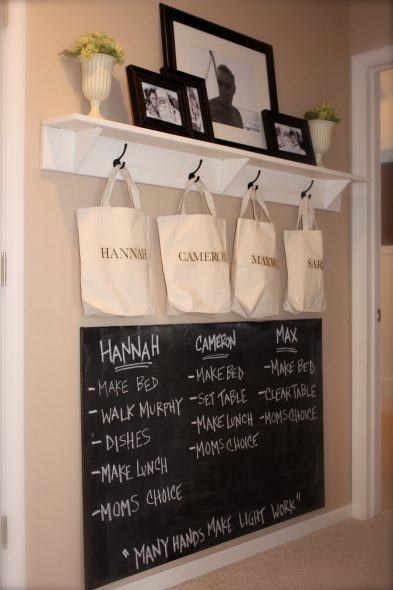 HANNAH
CAMERON
HANNAH
-MAKE BED
-WALK MURPHY
-DISHES
-MAKE LUNCH
-MOMS CHOICE
CAMERON
-MAKE BED
-SET TABLE
-MAKE LUNCH
-MOMS CHOICE
MAX
-MAKE BED
-CLEAR TABLE
-MOMS CHOICE
"MANY HANDS MAKE LIGHT WORK"